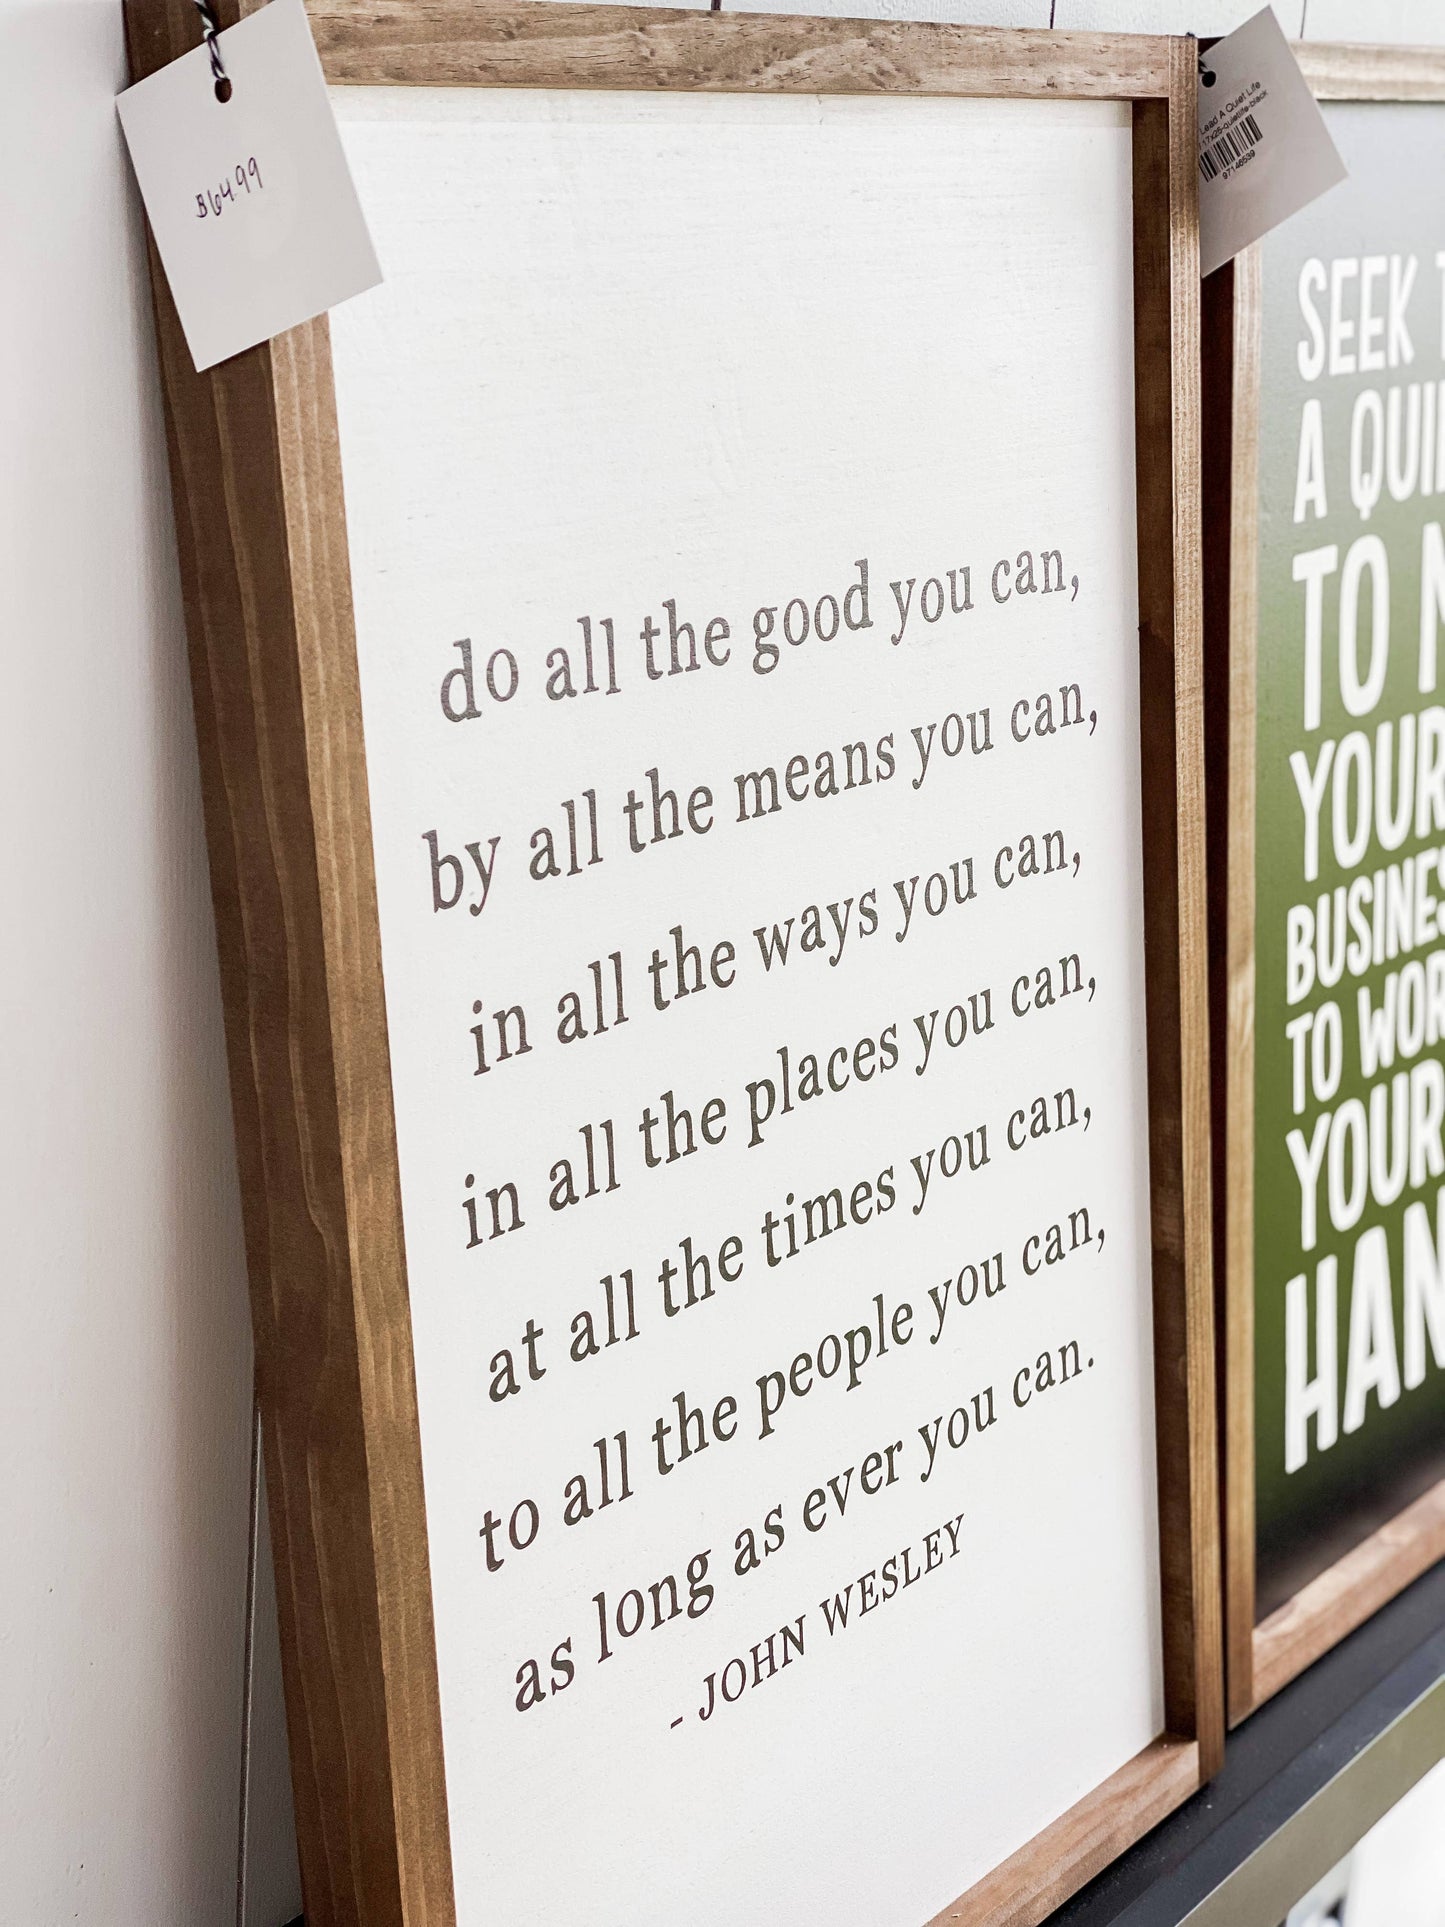 B64.99
do all the good you can,
by all the means you can,
in all the ways you can,
in all the places you can,
at all the times you can,
to all the people you can,
as long as ever you can.
- JOHN WESLEY
Lead A Quiet Life
17x25-quietlife-black
97146539
SEEK
A QUI
TO
YOUR
BUSINES
TO WOR
YOUR
HAN